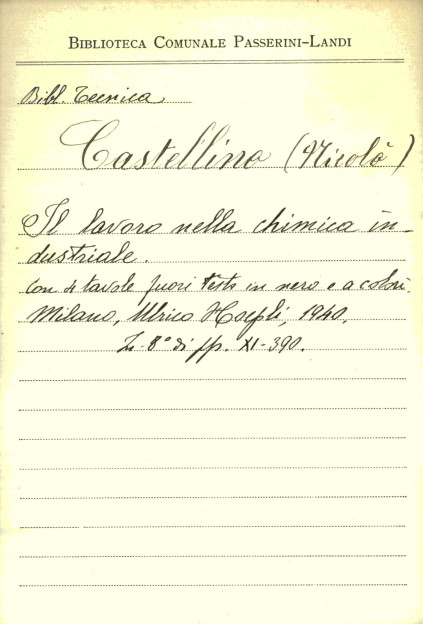 BIBLIOTECA COMUNALE PASSERINI-LANDI
Bibl. Tecnica
Castellino (Nicolò)
Il lavoro nella chimica in-
dustriale.
Con 4 tavole fuori testo in nero e a colori.
Milano, Ulrico Hoepli, 1940.
In-8° di pp. XI-390.